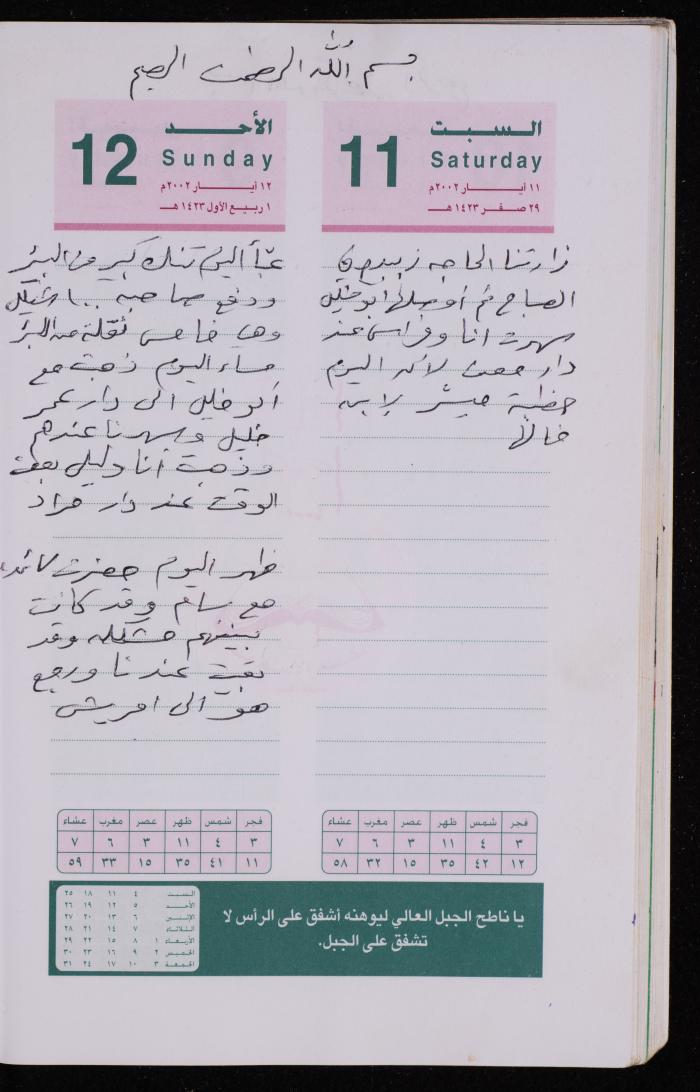 بسم الله الرحمن الرحيم
السبت
11
Saturday
١١ أيـــار ٢٠٠٢م
٢٩ صفــر ١٤٢٣هـ
زارتنا الحاجه زبيده في
الصباح ثم أوصلها أبو خليل
سهرت انا وفراس عند
دار حسن لأنه اليوم
خطبة ميسر لابنه
خالها
الأحد
12
Sunday
١٢ أيـــار ٢٠٠٢م
١ ربيع الأول ١٤٢٣هـ
عبأ اليوم تنك كبير من البئر
ودفع صاحبه .. شيكل
وهي خامس نقلة من البئر
مساء اليوم ذهبت مع
أبو خليل الى دار عمر
خليل وسهرنا عندهم
وذهبت أنا وليلى بعض
الوقت عند دار مراد
ظهر اليوم حضرت
مع سام وقد كانت
بينهم مشكله وقد
بقيت عندنا ورجع
هو الى امريش
فجر شمس ظهر عصر مغرب عشاء
٣ ٤ ١١ ٣ ٦ ٧
١٢ ٤٢ ٣٥ ١٥ ٣٢ ٥٨
فجر شمس ظهر عصر مغرب عشاء
٣ ٤ ١١ ٣ ٦ ٧
١١ ٤١ ٣٥ ١٥ ٣٣ ٥٩
يا ناطح الجبل العالي ليوهنه أشفق على الرأس لا
تشفق على الجبل.
السبت ٤ ١١ ١٨ ٢٥
الأحد ٥ ١٢ ١٩ ٢٦
الإثنين ٦ ١٣ ٢٠ ٢٧
الثلاثاء ٧ ١٤ ٢١ ٢٨
الأربعاء ١ ٨ ١٥ ٢٢ ٢٩
الخميس ٢ ٩ ١٦ ٢٣ ٣٠
الجمعة ٣ ١٠ ١٧ ٢٤ ٣١